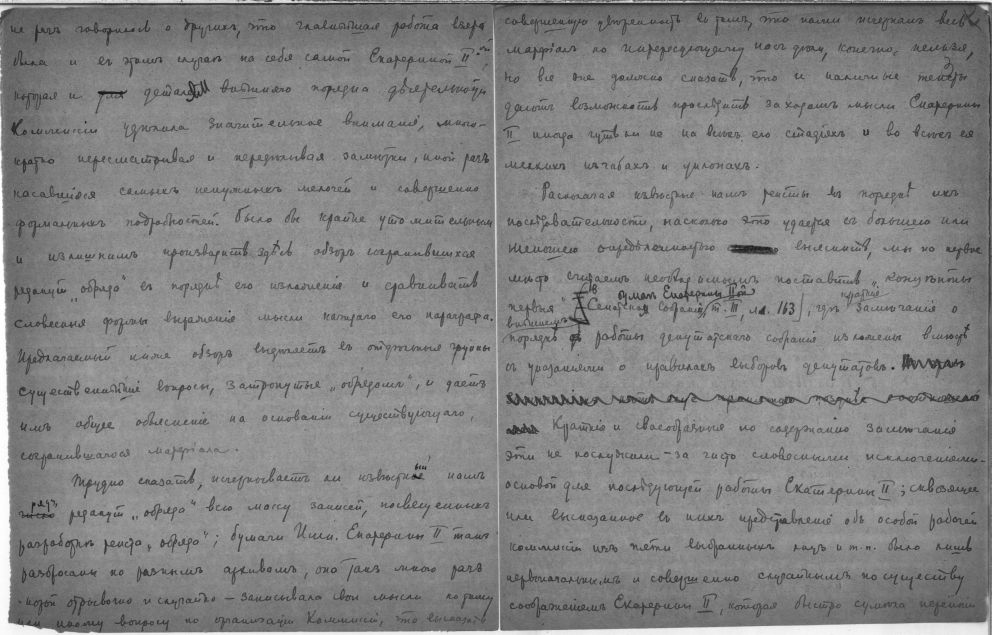 не разъ говорилось о другихъ, что главнѣйшая работа взята
была и въ этомъ случаѣ на себя самой Екатериной II-ой,
которая и деталямъ внѣшняго порядка дѣятельности
Коммиссіи удѣлила значительное вниманіе, много-
кратно пересматривая и передѣлывая замѣтки, иной разъ
касавшіяся самыхъ ненужныхъ мелочей и совершенно
формальныхъ подробностей. Было бы крайне утомительнымъ
и излишнимъ производить здѣсь обзоръ сохранившихся
редакцій „обряда" въ порядкѣ его изложенія и сравнивать
словесныя формы выраженія мысли каждаго его параграфа.
Предлагаемый ниже обзоръ выдѣляетъ въ отдѣльныя группы
существеннѣйшіе вопросы, затронутые „обрядомъ", и даетъ
имъ общее объясненіе на основаніи существующаго,
сохранившагося матеріала.
Трудно сказать, исчерпываетъ ли извѣстный намъ
рядъ редакцій „обряда" всю массу записей, посвященныхъ
разработкѣ текста „обряда"; бумаги Имп. Екатерины II такъ
разбросаны по разнымъ архивамъ, она такъ много разъ
отрывочно и случайно — записывала свои мысли по тому
или иному вопросу по организаціи Коммиссіи, что высказать
совершенную увѣренность въ томъ, что нами исчерпанъ весь
матеріалъ по интересующему насъ дѣлу, конечно, нельзя,
но все же должно сказать, что и наличные тексты
даютъ возможность прослѣдить за ходомъ мысли Екатерины
II иногда чуть ли не на всѣхъ его стадіяхъ и во всѣхъ ея
мелкихъ изгибахъ и уклонахъ.
Располагая извѣстные намъ тексты въ порядкѣ ихъ
послѣдовательности, насколько это удается съ большею или
меньшею опредѣленностью выяснить, мы на первое
мѣсто считаемъ необходимымъ поставить „
первыя" (въ Сенатскомъ собраніи бумагъ Екатерины II-ой, т. III, л. 163), гдѣ краткія замѣчанія о
внѣшнемъ порядкѣ работы депутатскаго собранія изложены вмѣстѣ
съ указаніями о правилахъ выборовъ депутатовъ.
Краткія и своеобразныя по содержанію замѣчанія
эти не послужили — за чисто словесными исключеніями —
основой для послѣдующей работы Екатерины II;
или высказанное въ нихъ представленіе объ особой рабочей
коммиссіи изъ пяти выбранныхъ лицъ и т. п. было лишь
первоначальнымъ и совершенно случайнымъ по существу
соображеніемъ Екатерины II, которая быстро сумѣла перейти